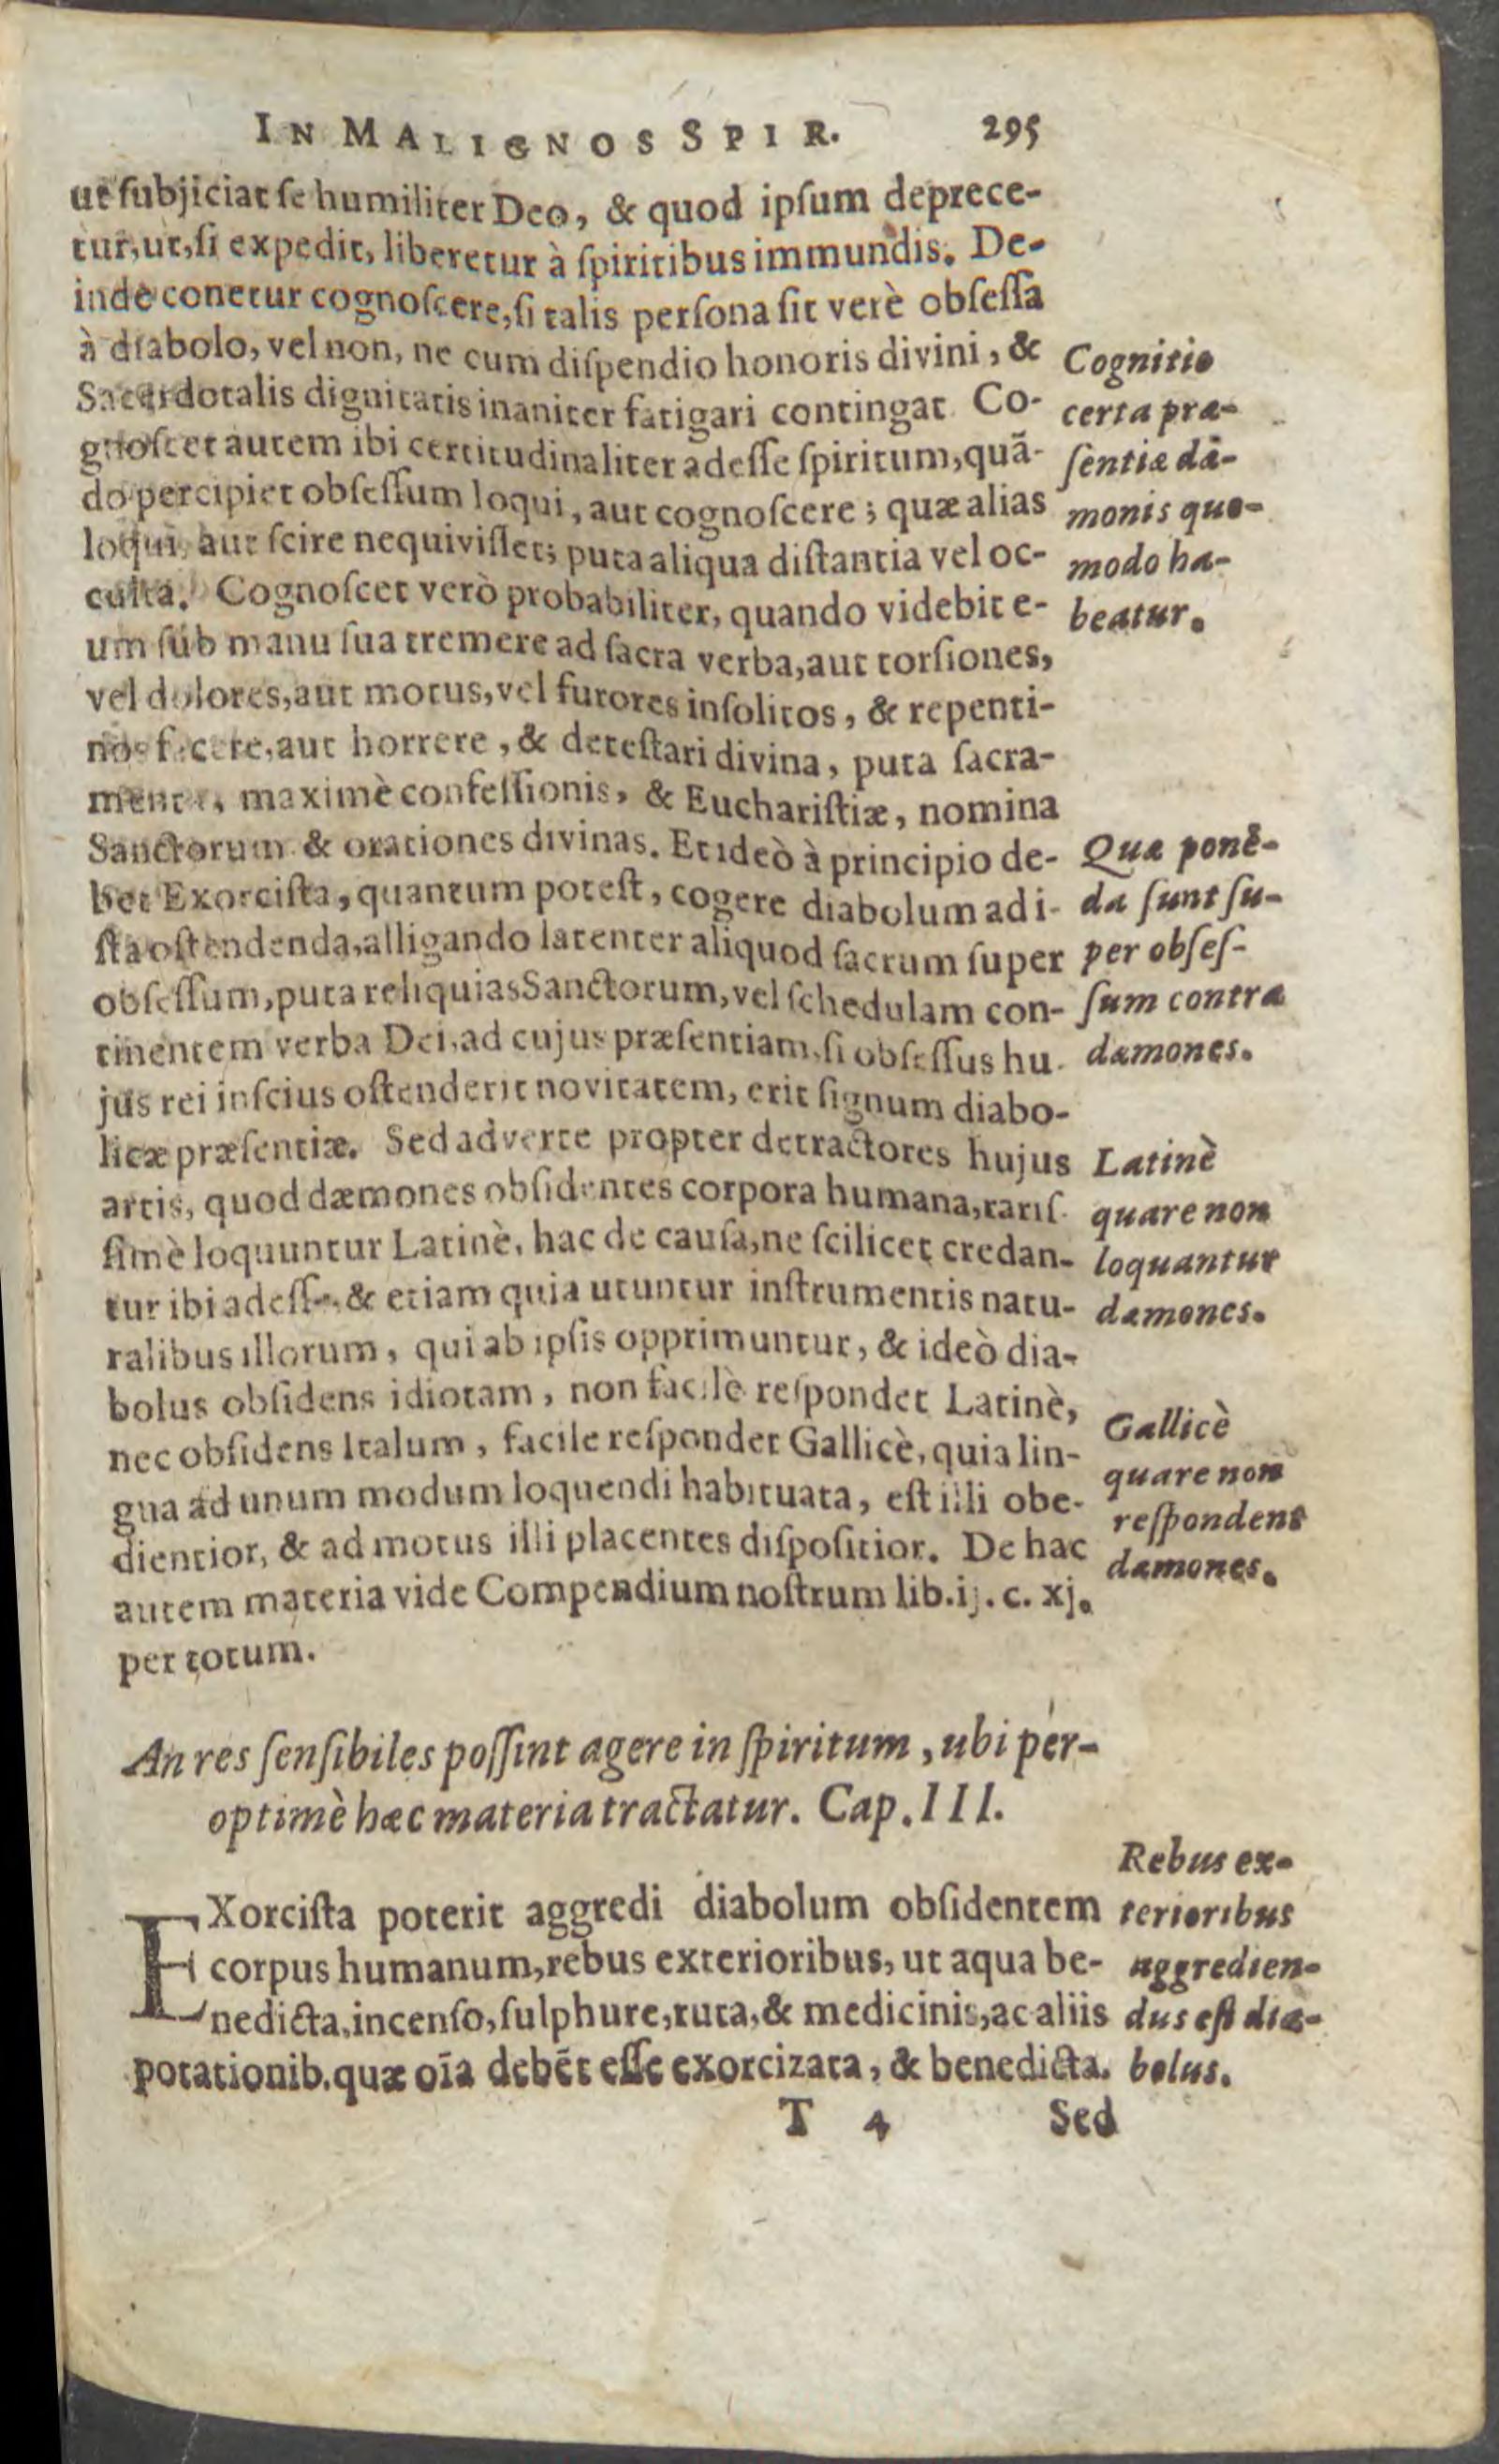 IN MALIGNOS SPIR. 295
ut ſubjiciat ſe humiliter Deo, & quod ipſum deprece-
tur, ut, ſi expedit, liberetur à ſpiritibus immundis. De-
inde conetur cognoſcere, ſi talis perſona ſit verè obſeſſa
à diabolo, vel non, ne cum diſpendio honoris divini, &
Sacerdotalis dignitatis inaniter fatigari contingat Co-
gnoſcet autem ibi certitudinaliter adeſſe ſpiritum, quã-
do percipiet obſeſſum loqui, aut cognoſcere; quæ alias
loqui, aut ſcire nequiviſſet; puta aliqua diſtantia vel oc-
culta. Cognoſcet verò probabiliter, quando videbit e-
um ſub manu ſua tremere ad ſacra verba, aut torſiones,
vel dolores, aut motus, vel furores inſolitos, & repenti-
nos facere, aut horrere, & deteſtari divina, puta ſacra-
menta, maximè confeſſionis, & Euchariſtiæ, nomina
Sanctorum & orationes divinas. Et ideò à principio de-
bet Exorciſta, quantum poteſt, cogere diabolum ad i-
ſta oſtendenda, alligando latenter aliquod ſacrum ſuper
obſeſſum, puta reliquias Sanctorum, vel ſchedulam con-
tinentem verba Dei, ad cujus præſentiam, ſi obſeſſus hu-
jus rei inſcius oſtenderit novitatem, erit ſignum diabo-
licæ præſentiæ. Sed adverte propter detractores hujus
artis, quod dæmones obſidentes corpora humana, rariſ-
ſimè loquuntur Latinè, hac de cauſa, ne ſcilicet credan-
tur ibi adeſſe, & etiam quia utuntur inſtrumentis natu-
ralibus illorum, qui ab ipſis opprimuntur, & ideò dia-
bolus obſidens idiotam, non facilè reſpondet Latinè,
nec obſidens Italum, facile reſpondet Gallicè, quia lin-
gua ad unum modum loquendi habituata, eſt illi obe-
dientior, & ad motus illi placentes diſpoſitior. De hac
autem materia vide Compendium noſtrum lib. ij. c. xj.
per totum.
Cognitio
certa præ-
ſentiæ dæ-
monis quo-
modo ha-
beatur.
Quæ ponẽ-
da ſunt ſu-
per obſeſ-
ſum contra
dæmones.
Latinè
quare non
loquantur
dæmones.
Gallicè
quare non
reſpondent
dæmones.
An res ſenſibiles poſſint agere in ſpiritum, ubi per-
optimè hæc materia tractatur. Cap. III.
EXorciſta poterit aggredi diabolum obſidentem
corpus humanum, rebus exterioribus, ut aqua be-
nedicta, incenſo, ſulphure, ruta, & medicinis, ac aliis
potationib. quæ oĩa debẽt eſſe exorcizata, & benedicta.
Rebus ex-
terioribus
aggredien-
dus eſt dia-
bolus.
T 4 Sed